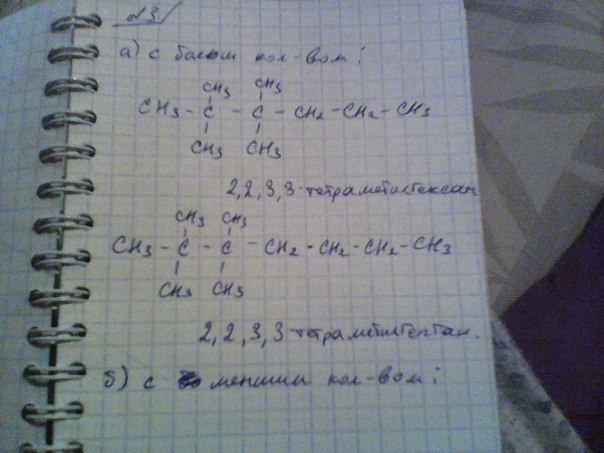 №3/
а) с больш кол-вом:
CH3 CH3
CH3 - C - C - CH2 - CH2 - CH3
CH3 CH3
2,2,3,3-тетраметилгексан
CH3 CH3
CH3 - C - C - CH2 - CH2 - CH2 - CH3
CH3 CH3
2,2,3,3-тетраметилгептан.
б) с меншим кол-вом: